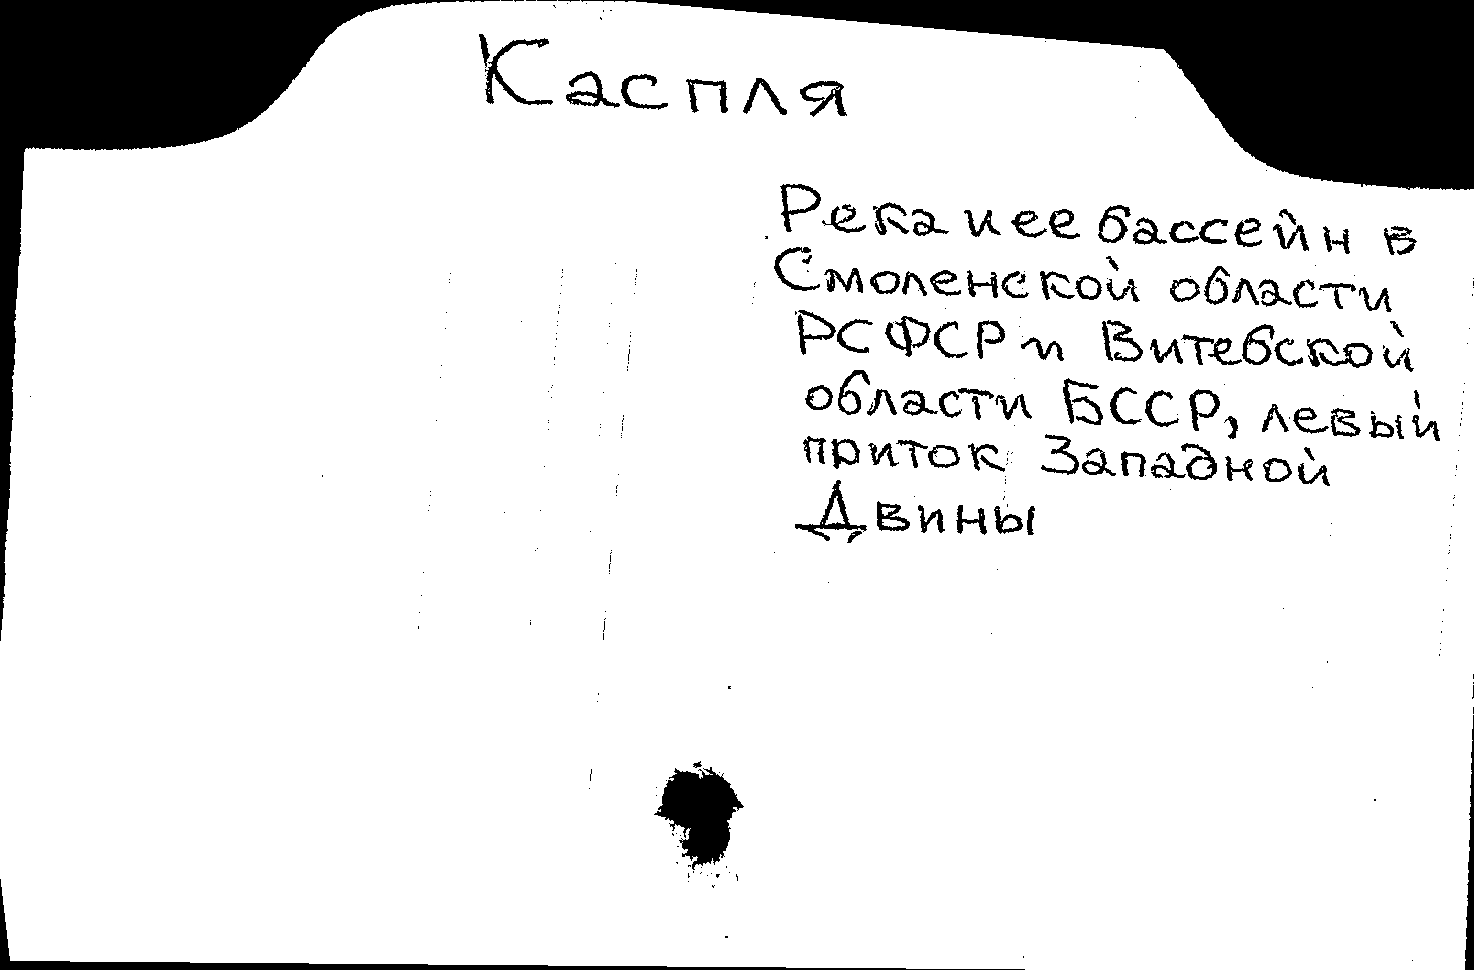 Каспля
Река и ее бассейн в
Смоленской области
РСФСР и Витебской
области БССР, левый
приток Западной
Двины